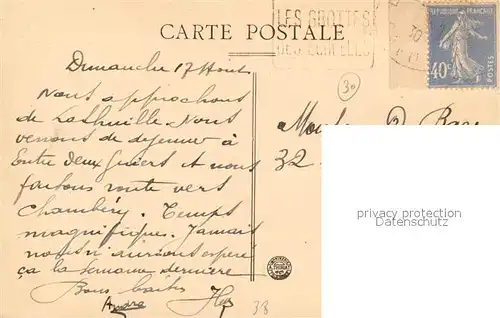 CARTE POSTALE
LES GROTTES
DES ECHELLES
REPUBLIQUE FRANCAISE
40c
POSTES
Dimanche 17 Août
30
Nous approchons
de Lashuille. Nous
venons de dejeuner à
Entre deux Guiers et nous
faisons route vers
Chambéry. Temps
magnifique. Jamais
nous n'aurions espéré
ça la semaine dernière
Bons baisers
Andre
38
32
privacy protection
watermark
Privatsphäreschutz
Wasserzeichen